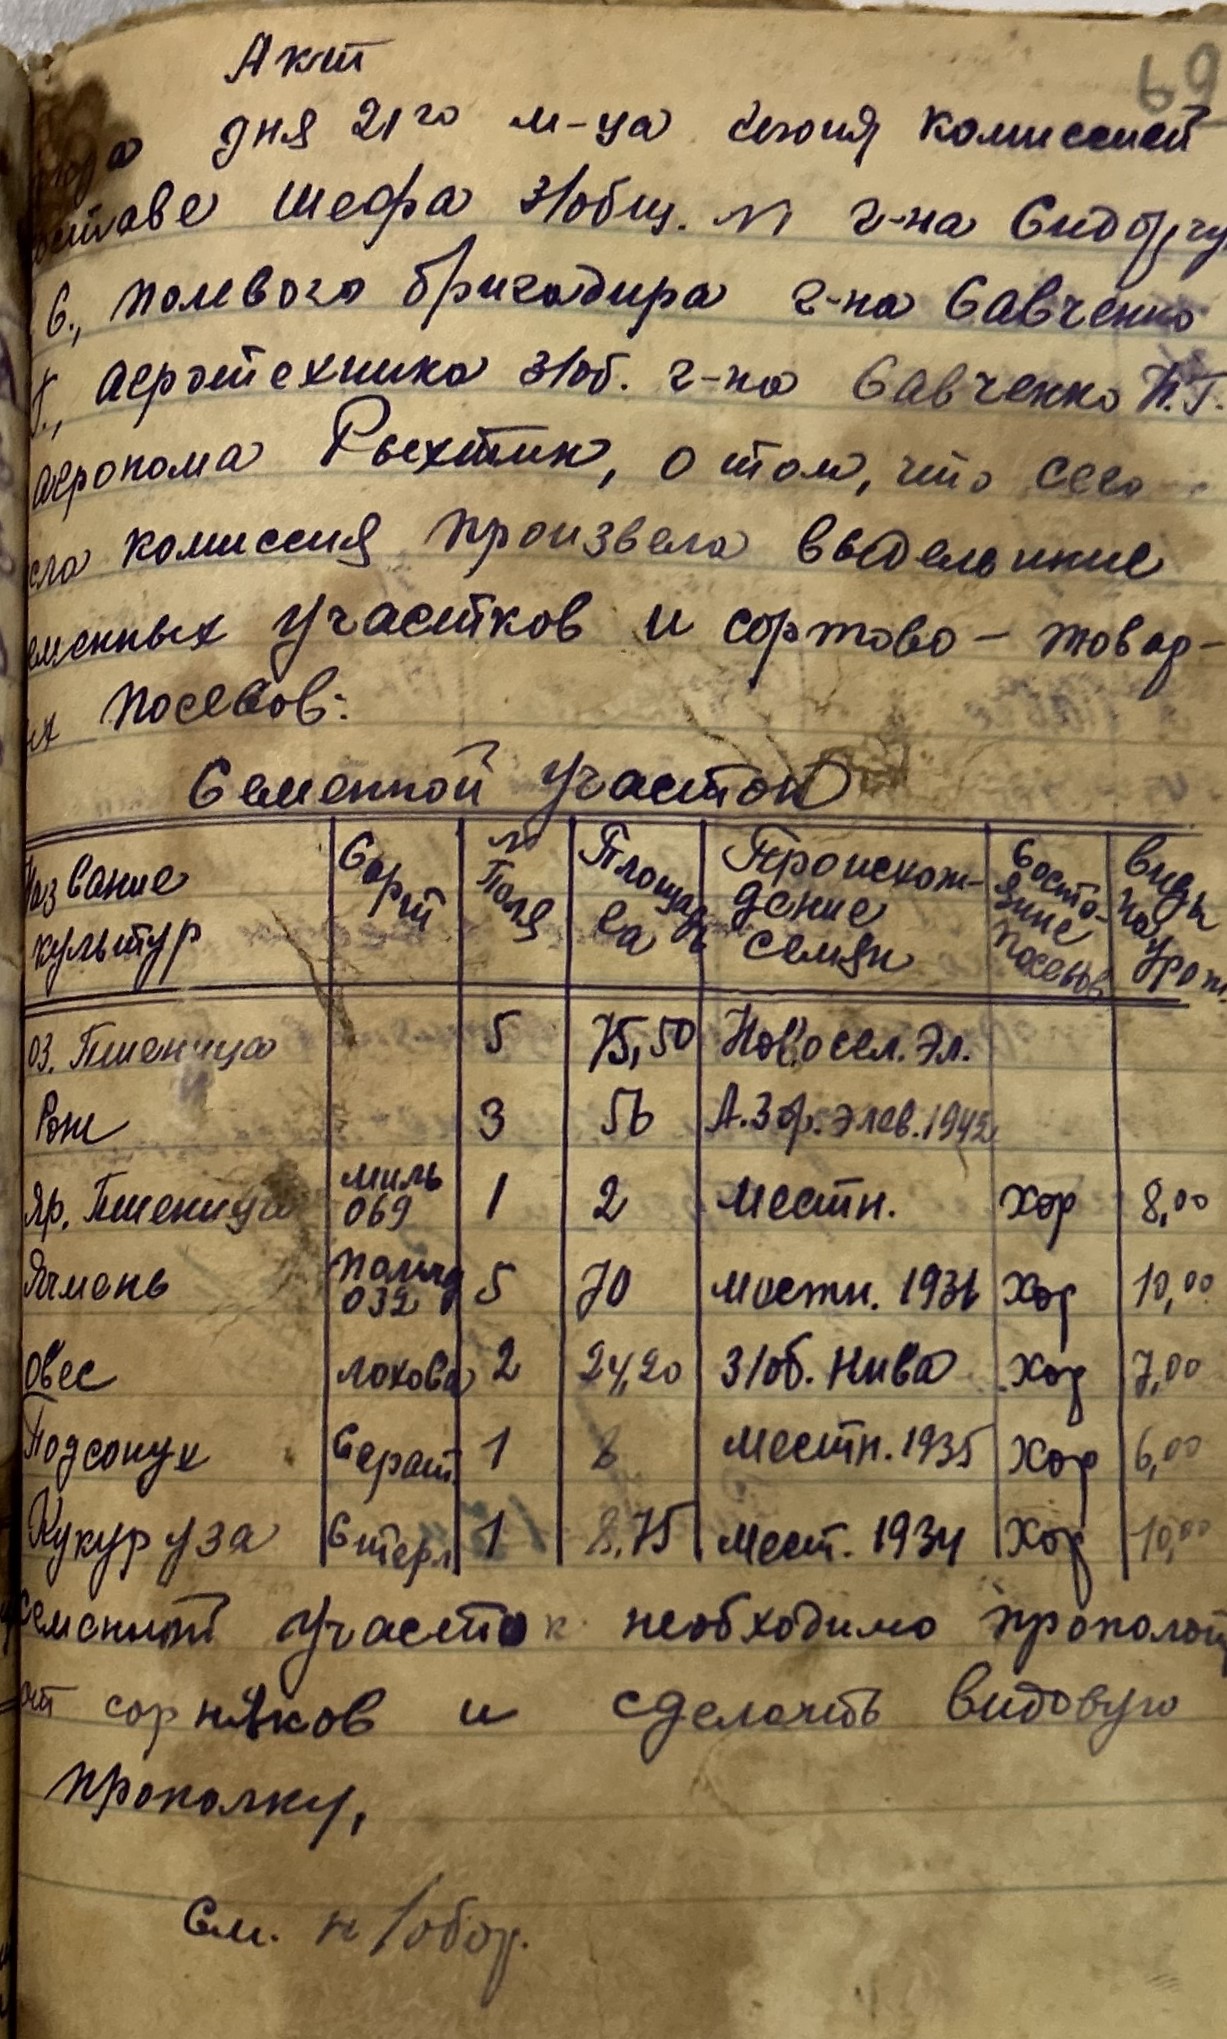 69
Акт
года дня 21го м-ца июня комиссией
составе шефа з/общ. № г-на
С., полевого бригадира г-на Савченко
Г., агротехника з/об. г-на Савченко П.Г.
агронома Рыхтик, о том, что сего
сла комиссия произвела выделение
еменных участков и сортово – товар-
ых посевов:
Семенной участок
Название культур Сорт № Поля Площадь га Происхождение семян Состояние посевов виды на урож
оз. Пшеница 5 75,50 Новосел. Эл.
Рож 3 56 А.Зфр. элев. 1942
яр. Пшеница миль 069 1 2 местн. хор 8,00
Ячмень 032 5 70 местн. 1936 хор 10,00
овес лохова 2 24,20 з/об. Нива хор 7,00
Подсонух Серат 1 8 местн. 1935 хор 6,00
Кукуруза Стерл 1 8,75 мест. 1934 хор 10,00
семенной участок необходимо прополот
от сорняков и сделать видовую
прополку,
См. н/обор.